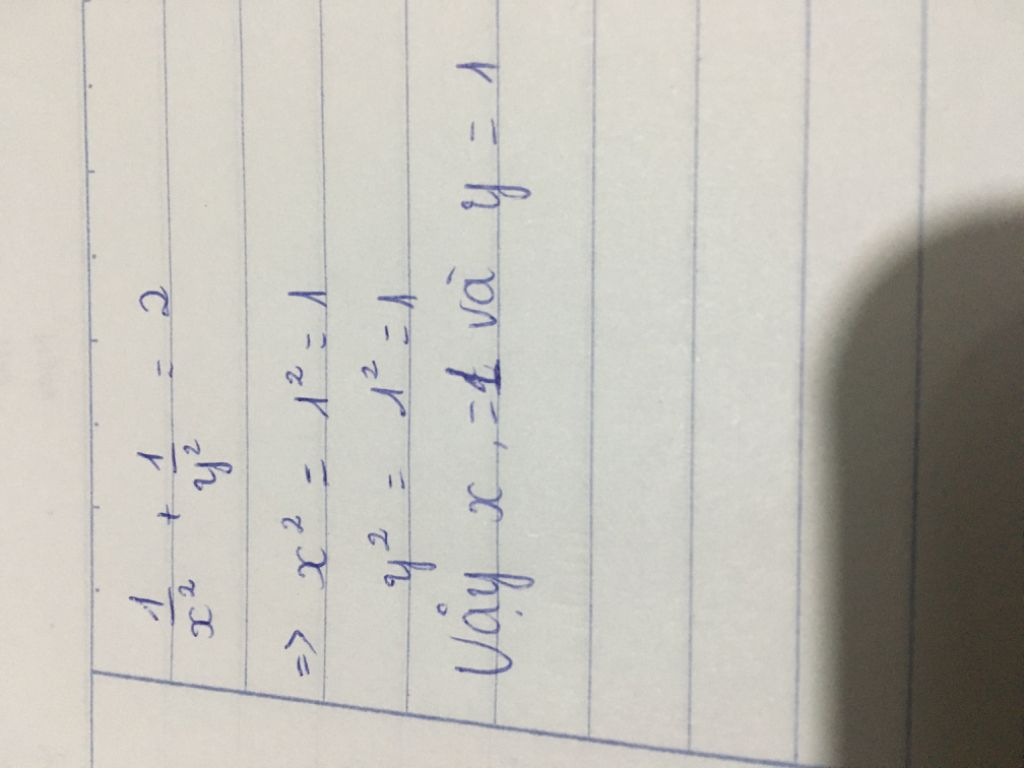 1/x² + 1/y² = 2
=> x² = 1² = 1
y² = 1² = 1
Vậy x, = 1 và y = 1